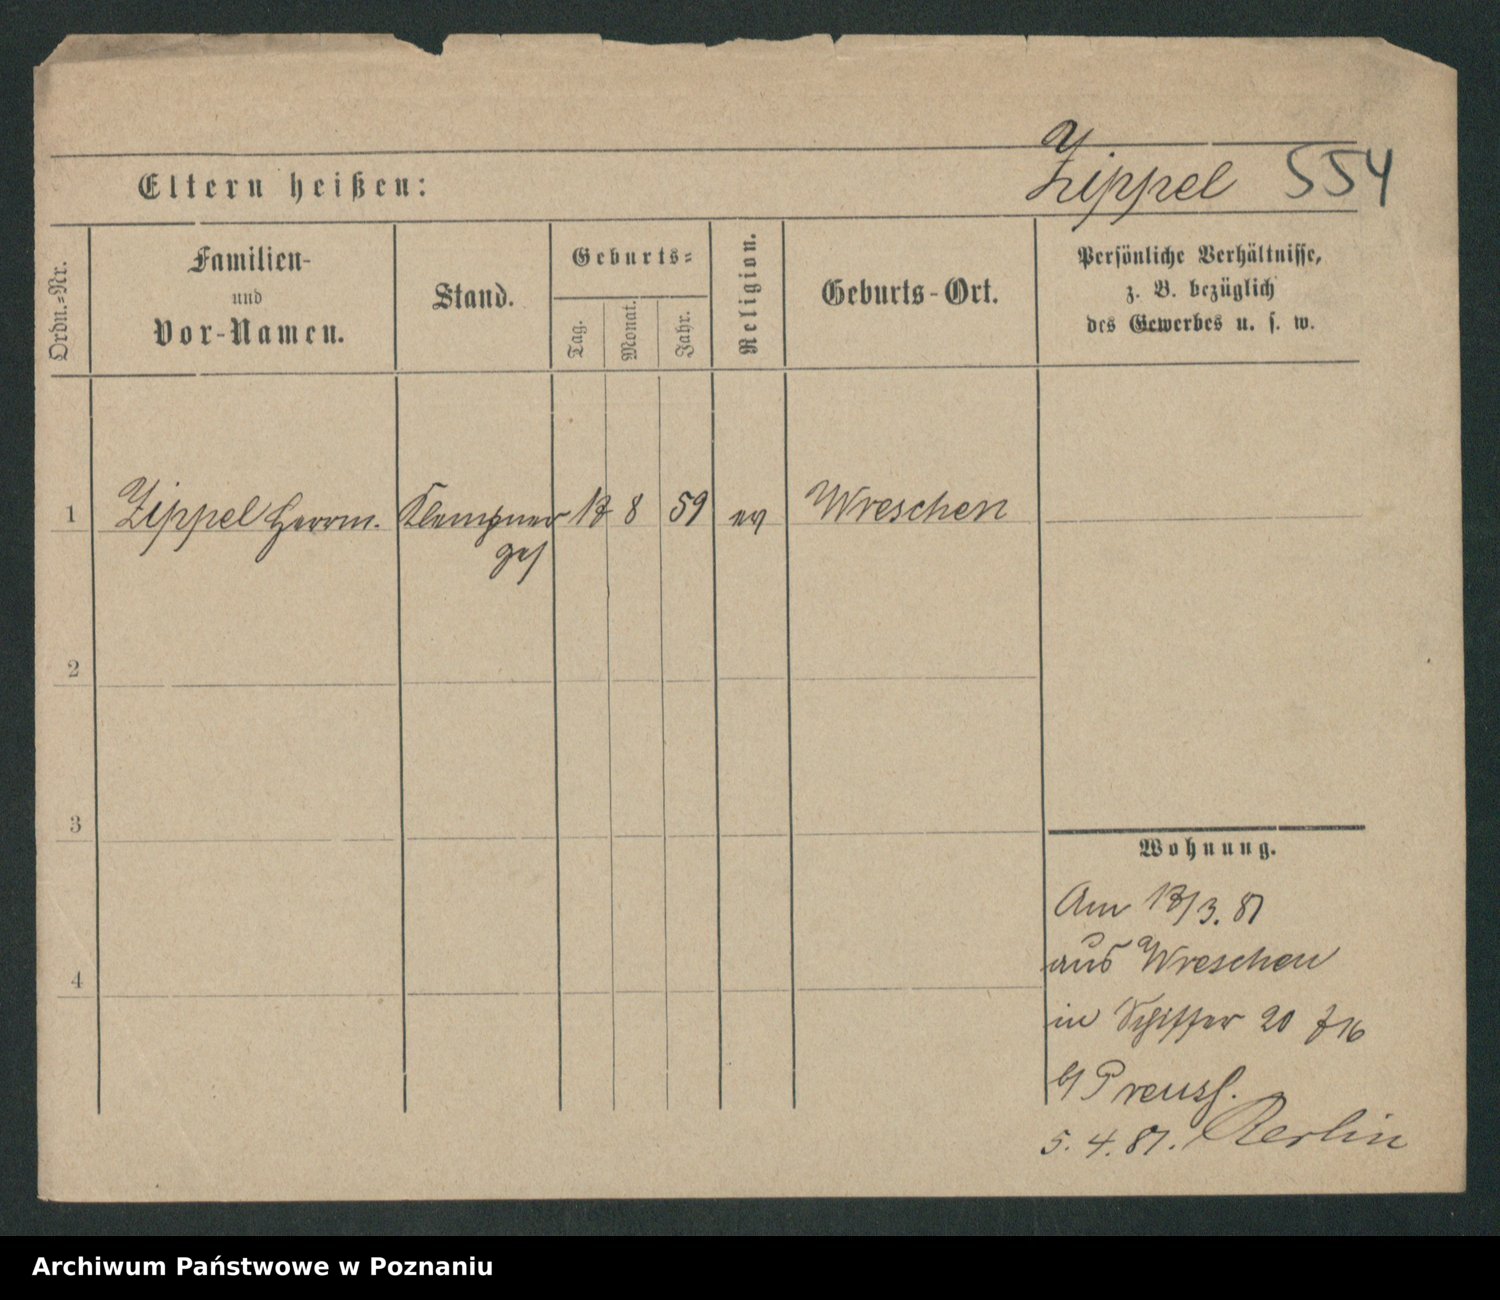 Zippel 554
Eltern heißen:
Ordn.=Nr.
Familien-
und
Vor-Namen.
Stand.
Geburts=
Tag.
Monat.
Jahr.
Religion.
Geburts-Ort.
Persönliche Verhältnisse,
z. B. bezüglich
des Gewerbes u. s. w.
1 Zippel Herrm. Klempner 13 8 59 ev Wreschen
ges
2
3
4
Wohnung.
Am 13/3. 81
aus Wreschen
in Schiffer 20 16
b/ Preuss.
5. 4. 81. Berlin
Archiwum Państwowe w Poznaniu